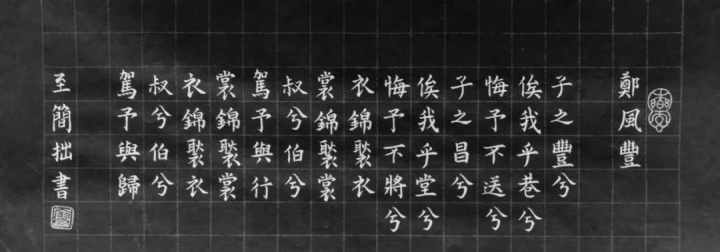 鄭風豐
子之豐兮
俟我乎巷兮
悔予不送兮
子之昌兮
俟我乎堂兮
悔予不將兮
衣錦褧衣
裳錦褧裳
叔兮伯兮
駕予與行
裳錦褧裳
衣錦褧衣
叔兮伯兮
駕予與歸
至簡拙書